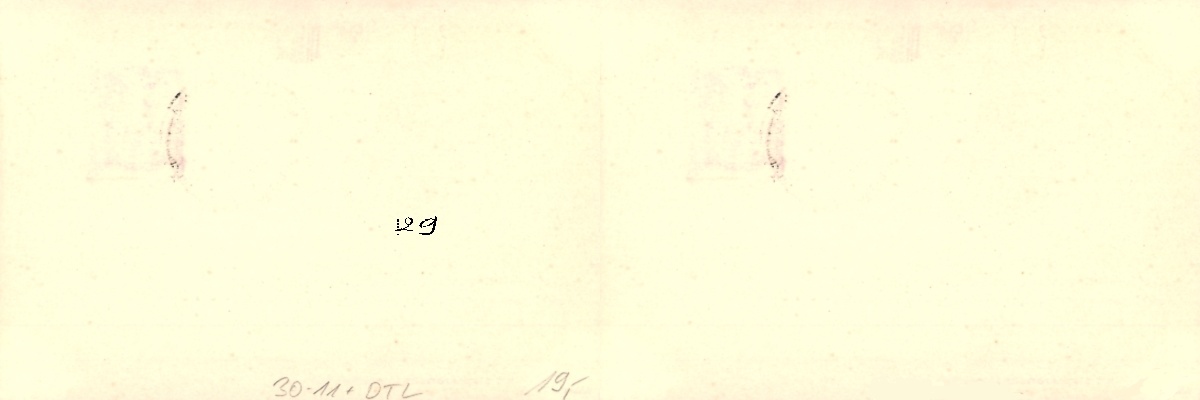 29
30-11+ DTL
19,-